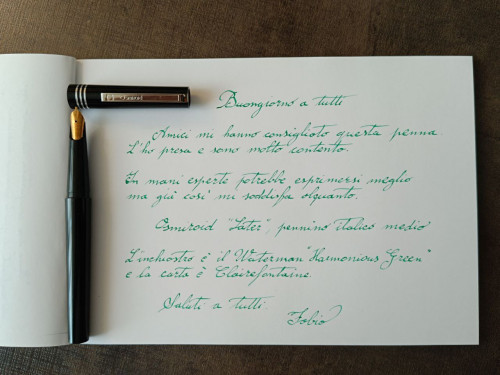 Buongiorno a tutti
Amici mi hanno consigliato questa penna
L'ho presa e sono molto contento.
In mani esperte potrebbe esprimersi meglio
ma già così mi soddisfa alquanto.
Osmiroid "Sater", pennino italico medio
L'inchiostro è il Waterman "Harmonious Green"
e la carta è Clairefontaine.
Saluti a tutti.
Fabio